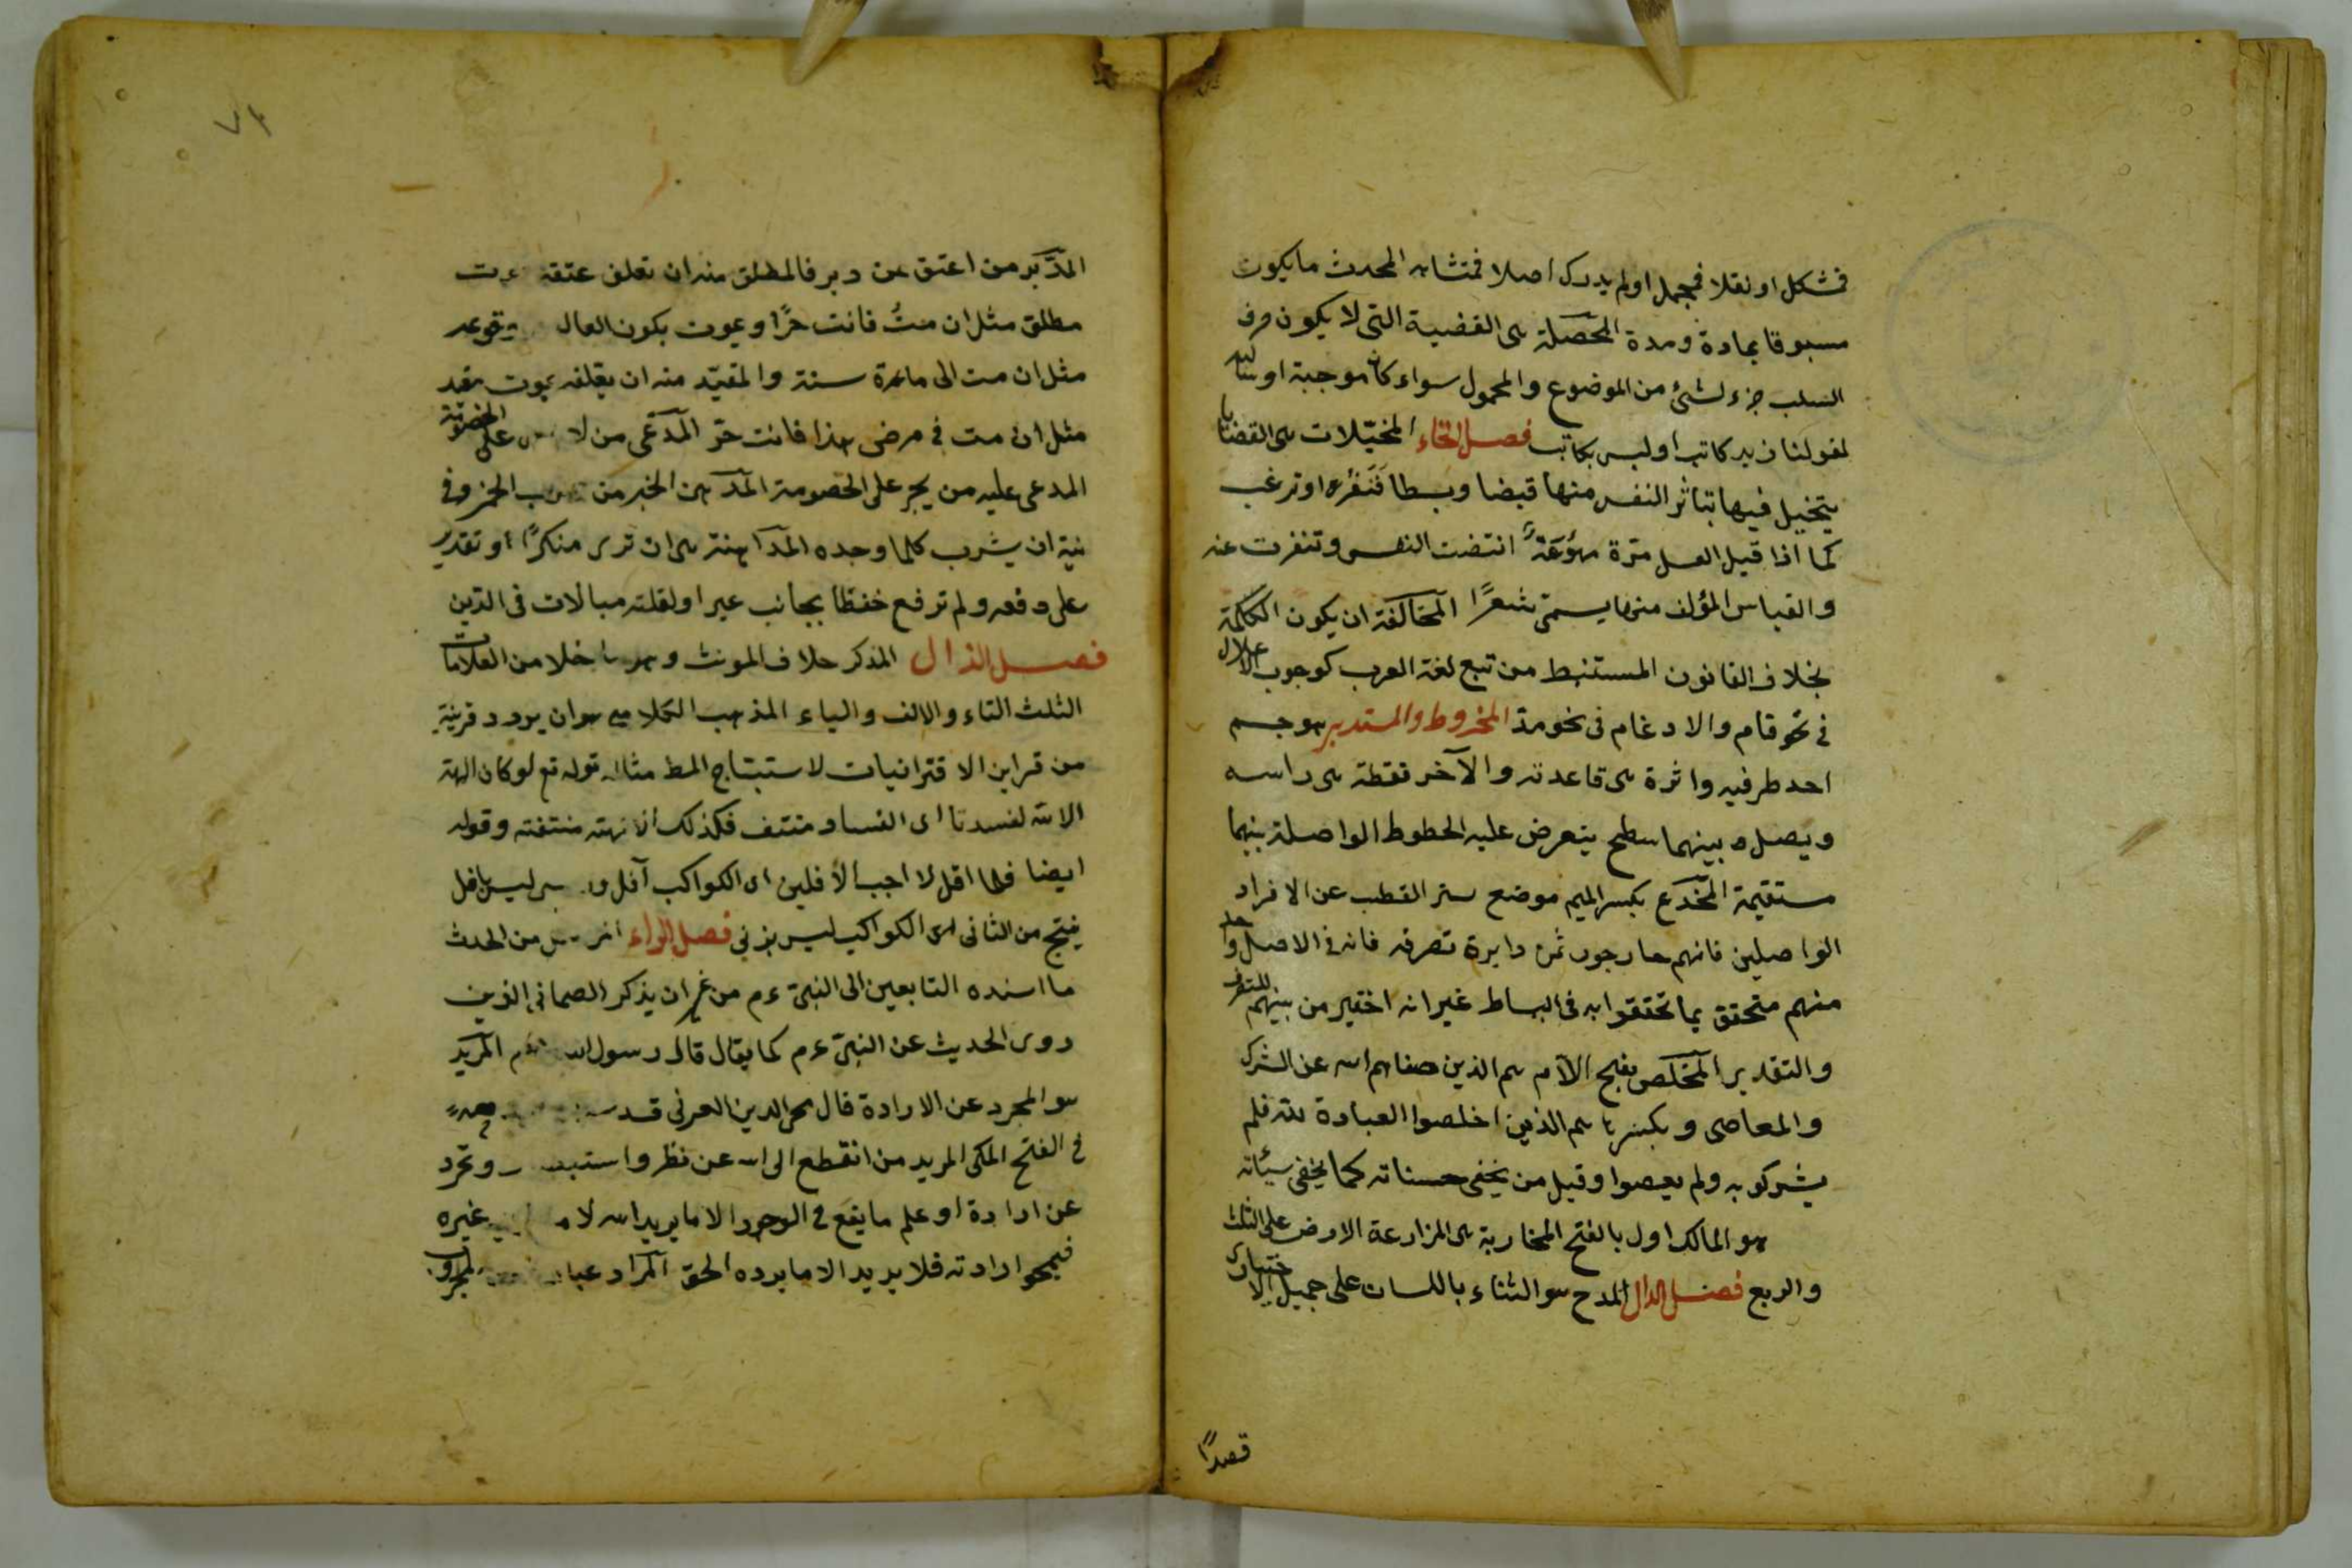 فمشكل او نقلا فمجمل او لم يدرك اصلا فمتشابه المحدث ما يكون
مسبوقا بمادة ومدة المحصلة هى القضية التى لا يكون حرف
السلب جزء لشئ من الموضوع والمحمول سواء كان موجبة او سالبة
لقولنا زيد كاتب او ليس بكاتب فصل الخاء المخيّلات هى القضايا
يتخيل فيها بتاثر النفس منها قبضا وبسطا فتنفره او ترغب
كما اذا قيل العسل مرّة مهوّعة انقبضت النفس وتنفرت عنه
والقياس المؤلف منها يسمّى شعرًا المخالفة ان يكون الكلمة
بخلاف القانون المستنبط من تتبع لغة العرب كوجوب الاعلال
فى نحو قام والادغام فى نحو مدّ المخروط والمستدير هو جسم
احد طرفيه دائرة هى قاعدته والآخر نقطة هى راسه
ويصل بينهما سطح يتعرض عليه الخطوط الواصلة بينهما
مستقيمة المخدع بكسر الميم موضع ستر القطب عن الافراد
الواصلين فانهم خارجون عن دايرة تصرفه فانه فى الاصل واحد
منهم متحقق بما تحققوا به فى البساط غير انه اختير من بينهم للتصرف
والتقدير المخلص بفتح اللام هم الذين صفاهم الله عن الشرك
والمعاصى وبكسرها هم الذين اخلصوا العبادة لله فلم
يشركو به ولم يعصوا وقيل من يخفى حسناته كما يخفى سيئاته
هو المالك اول بالفتح المخاربة هى المزارعة الارض على الثلث
والربع فصل الدال المدح هو الثناء باللسان على جميل الاختيارى
قصدًا
٧٤
المدّبر من اعتق عن دبر فالمطلق منه ان تعلق عتقه بموت
مطلق مثل ان متُ فانت حرًا وبموت يكون الغالب وقوعه
مثل ان مت الى مائة سنة والمقيّد منه ان يعلقه بموت مقيد
مثل ان مت فى مرضى هذا فانت حرّ المدّعى من لا على الخصومة
المدعى عليه من يجبر على الخصومة المدمن الخمر من شرب الخمر وفى
نيته ان يشرب كلما وجده المداهنة هى ان ترى منكرًا او تقدر
على دفعه ولم ترفع حفظا بجانب غير او لقلة مبالات فى الدّين
فصل الذال المذكر خلاف المونث وهو ما خلا من العلامات
الثلث التاء والالف والياء المذهب الكلامى هو ان يورد قرينة
من قراين الاقترانيات لاستنتاج المط مثاله قوله تع لو كان الهة
الا الله لفسدتا اى الفساد منتف فكذلك الالهة منتفية وقوله
ايضا فلما افل لا احب الآفلين اى الكواكب آفل و ليس بافل
ينتج من الثانى ان الكواكب ليس بربى فصل الراء المرسل من الحدث
ما اسنده التابعين الى النبى ءم من غير ان يذكر الصحابى الذى
روى الحديث عن النبى ءم كما يقال قال رسول الله المريد
هو المجرد عن الارادة قال محى الدين العربى قدس
فى الفتح المكى المريد من انقطع الى الله عن نظر واستبصار وتجرد
عن ارادة او علم ما يقع فى الوجود الا ما يريد الله لا ما غيره
فيمحو ارادته فلا يريد الا ما يرده الحق المراد عبارة المجذوب